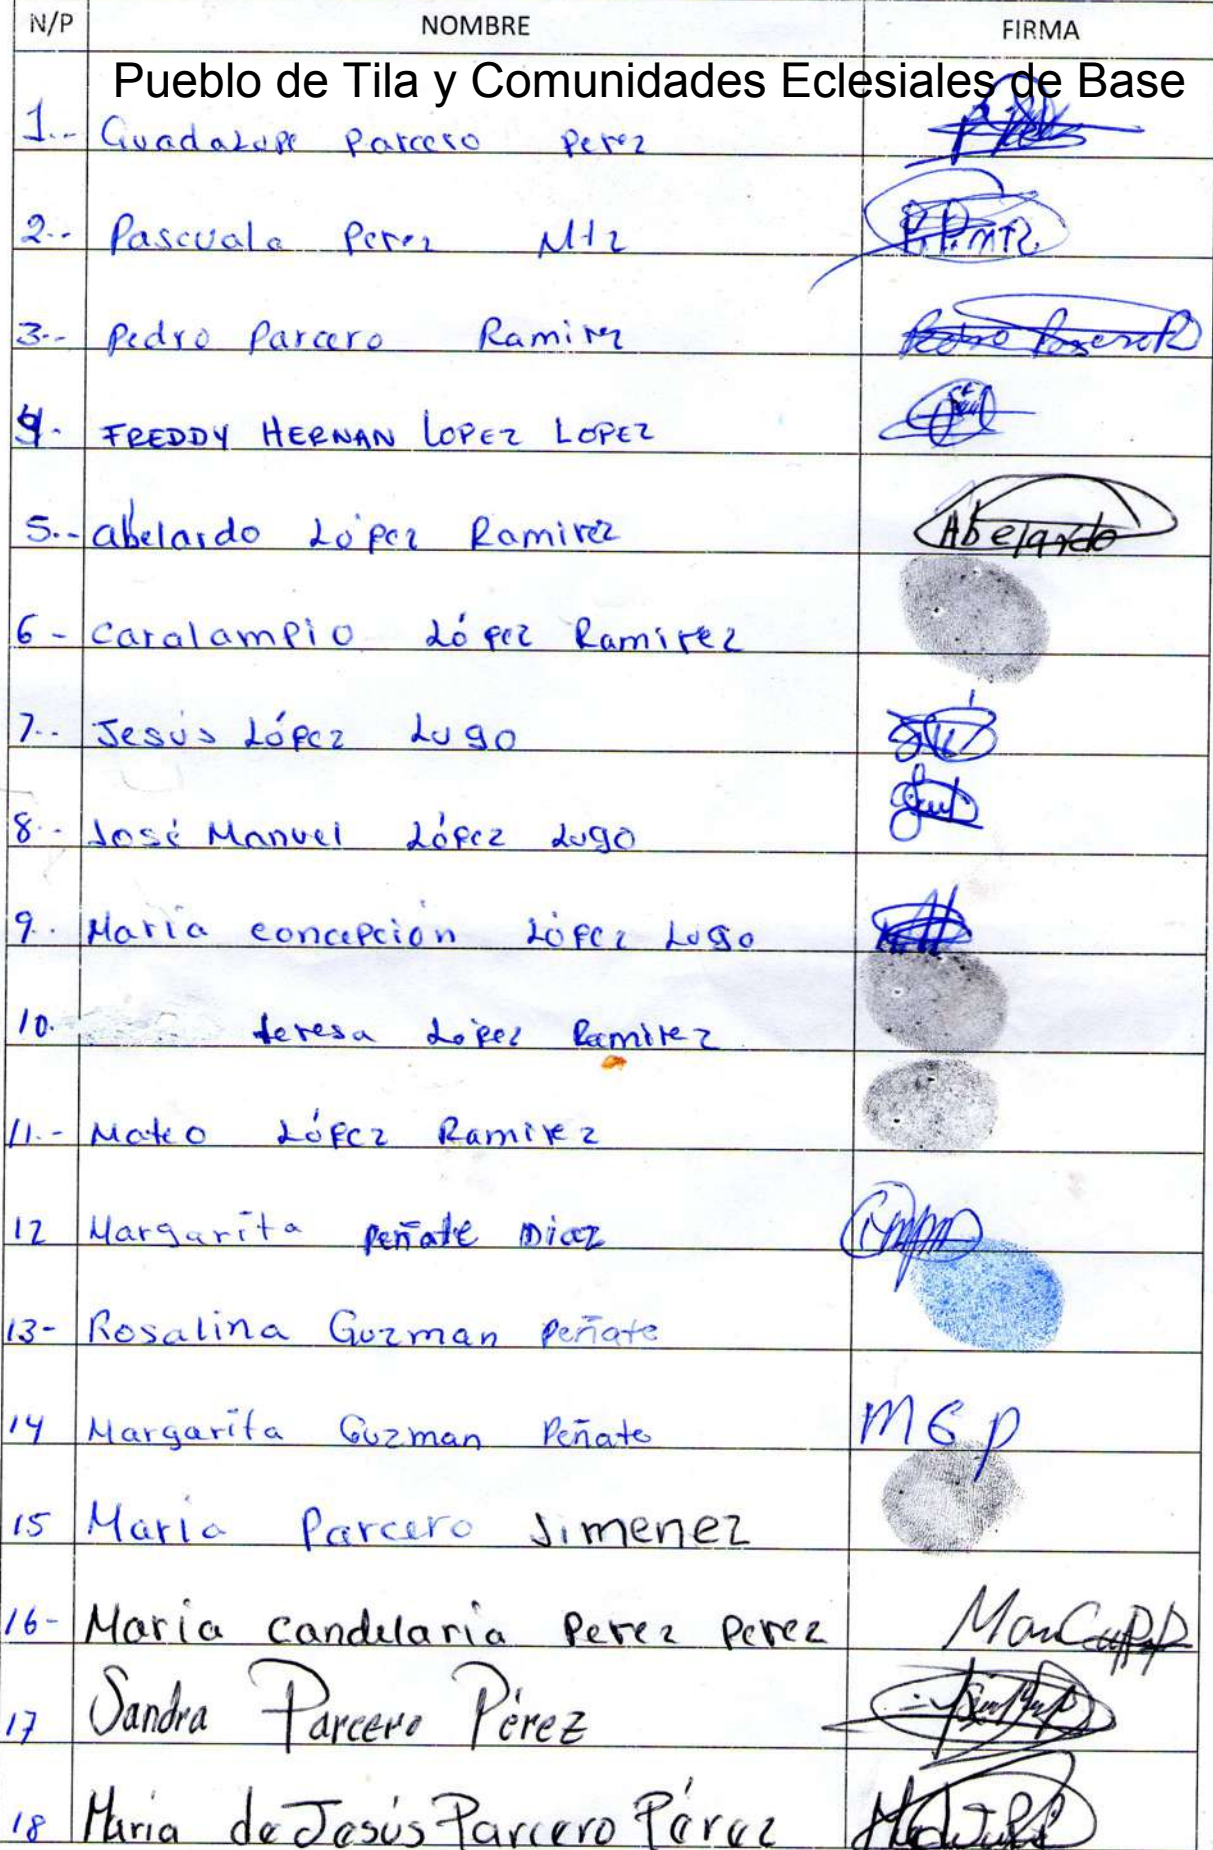 N/P NOMBRE FIRMA
Pueblo de Tila y Comunidades Eclesiales de Base
1.- Guadalupe Parcero Perez
2.- Pascuala Perez Mtz P.P.mtz.
3.- Pedro Parcero Ramirez Pedro Parcero R
4.- FREDDY HERNAN LOPEZ LOPEZ
5.- abelardo López Ramirez Abelardo
6- Caralampio López Ramirez
7.- Jesús López Lugo
8.- José Manuel López Lugo
9.- María concepción López Lugo
10. teresa López Ramirez
11.- Mateo López Ramirez
12 Margarita Peñate Diaz
13- Rosalina Guzman Peñate
14 Margarita Guzman Peñate M G P
15 Maria Parcero Jimenez
16- Maria Candelaria Perez Perez
17 Sandra Parcero Pérez
18 Maria de Jesús Parcero Pérez